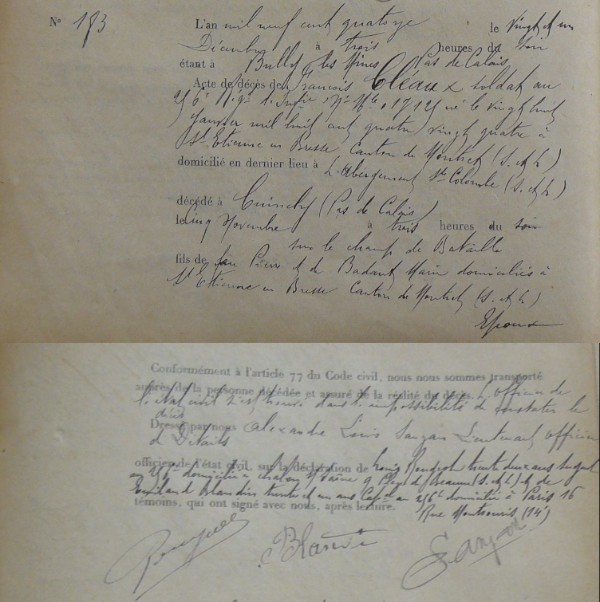 N° 183
L'an mil neuf cent quatorze le vingt et un
Décembre à trois heures du soir
étant à Bully les Mines Pas de Calais
Acte de décès de François Cléaux soldat au
256e Rgt d'Infie né le vingt huit
Janvier mil huit cent quatre vingt quatre à
St Etienne en Bresse Canton de Montret (S. et L.)
domicilié en dernier lieu à L'Abergement Ste Colombe (S. et L.)
décédé à Cuinchy (Pas de Calais)
le cinq Novembre à trois heures du soir
sur le champ de Bataille
fils de feu Pierre et de Badaut Marie domiciliés à
St Etienne en Bresse Canton de Montret (S. et L.)
Epoux
Conformément à l'article 77 du Code civil, nous nous sommes transporté
auprès de la personne décédée et assuré de la réalité du décès. L'officier de
l'Etat civil s'est trouvé dans l'impossibilité de constater le
décès
Dressé par nous Alexandre Louis Lieutenant officier
de Détails
officier de l'état civil, sur la déclaration de Louis trente deux ans Sergent
au 256e domicilié à Chalon s/ Saône 9 Place de Beaune (S. et L.) et de
Blandin trente et un ans Caporal au 256e domicilié à Paris 16
Rue Montsouris (14e)
témoins, qui ont signé avec nous, après lecture.